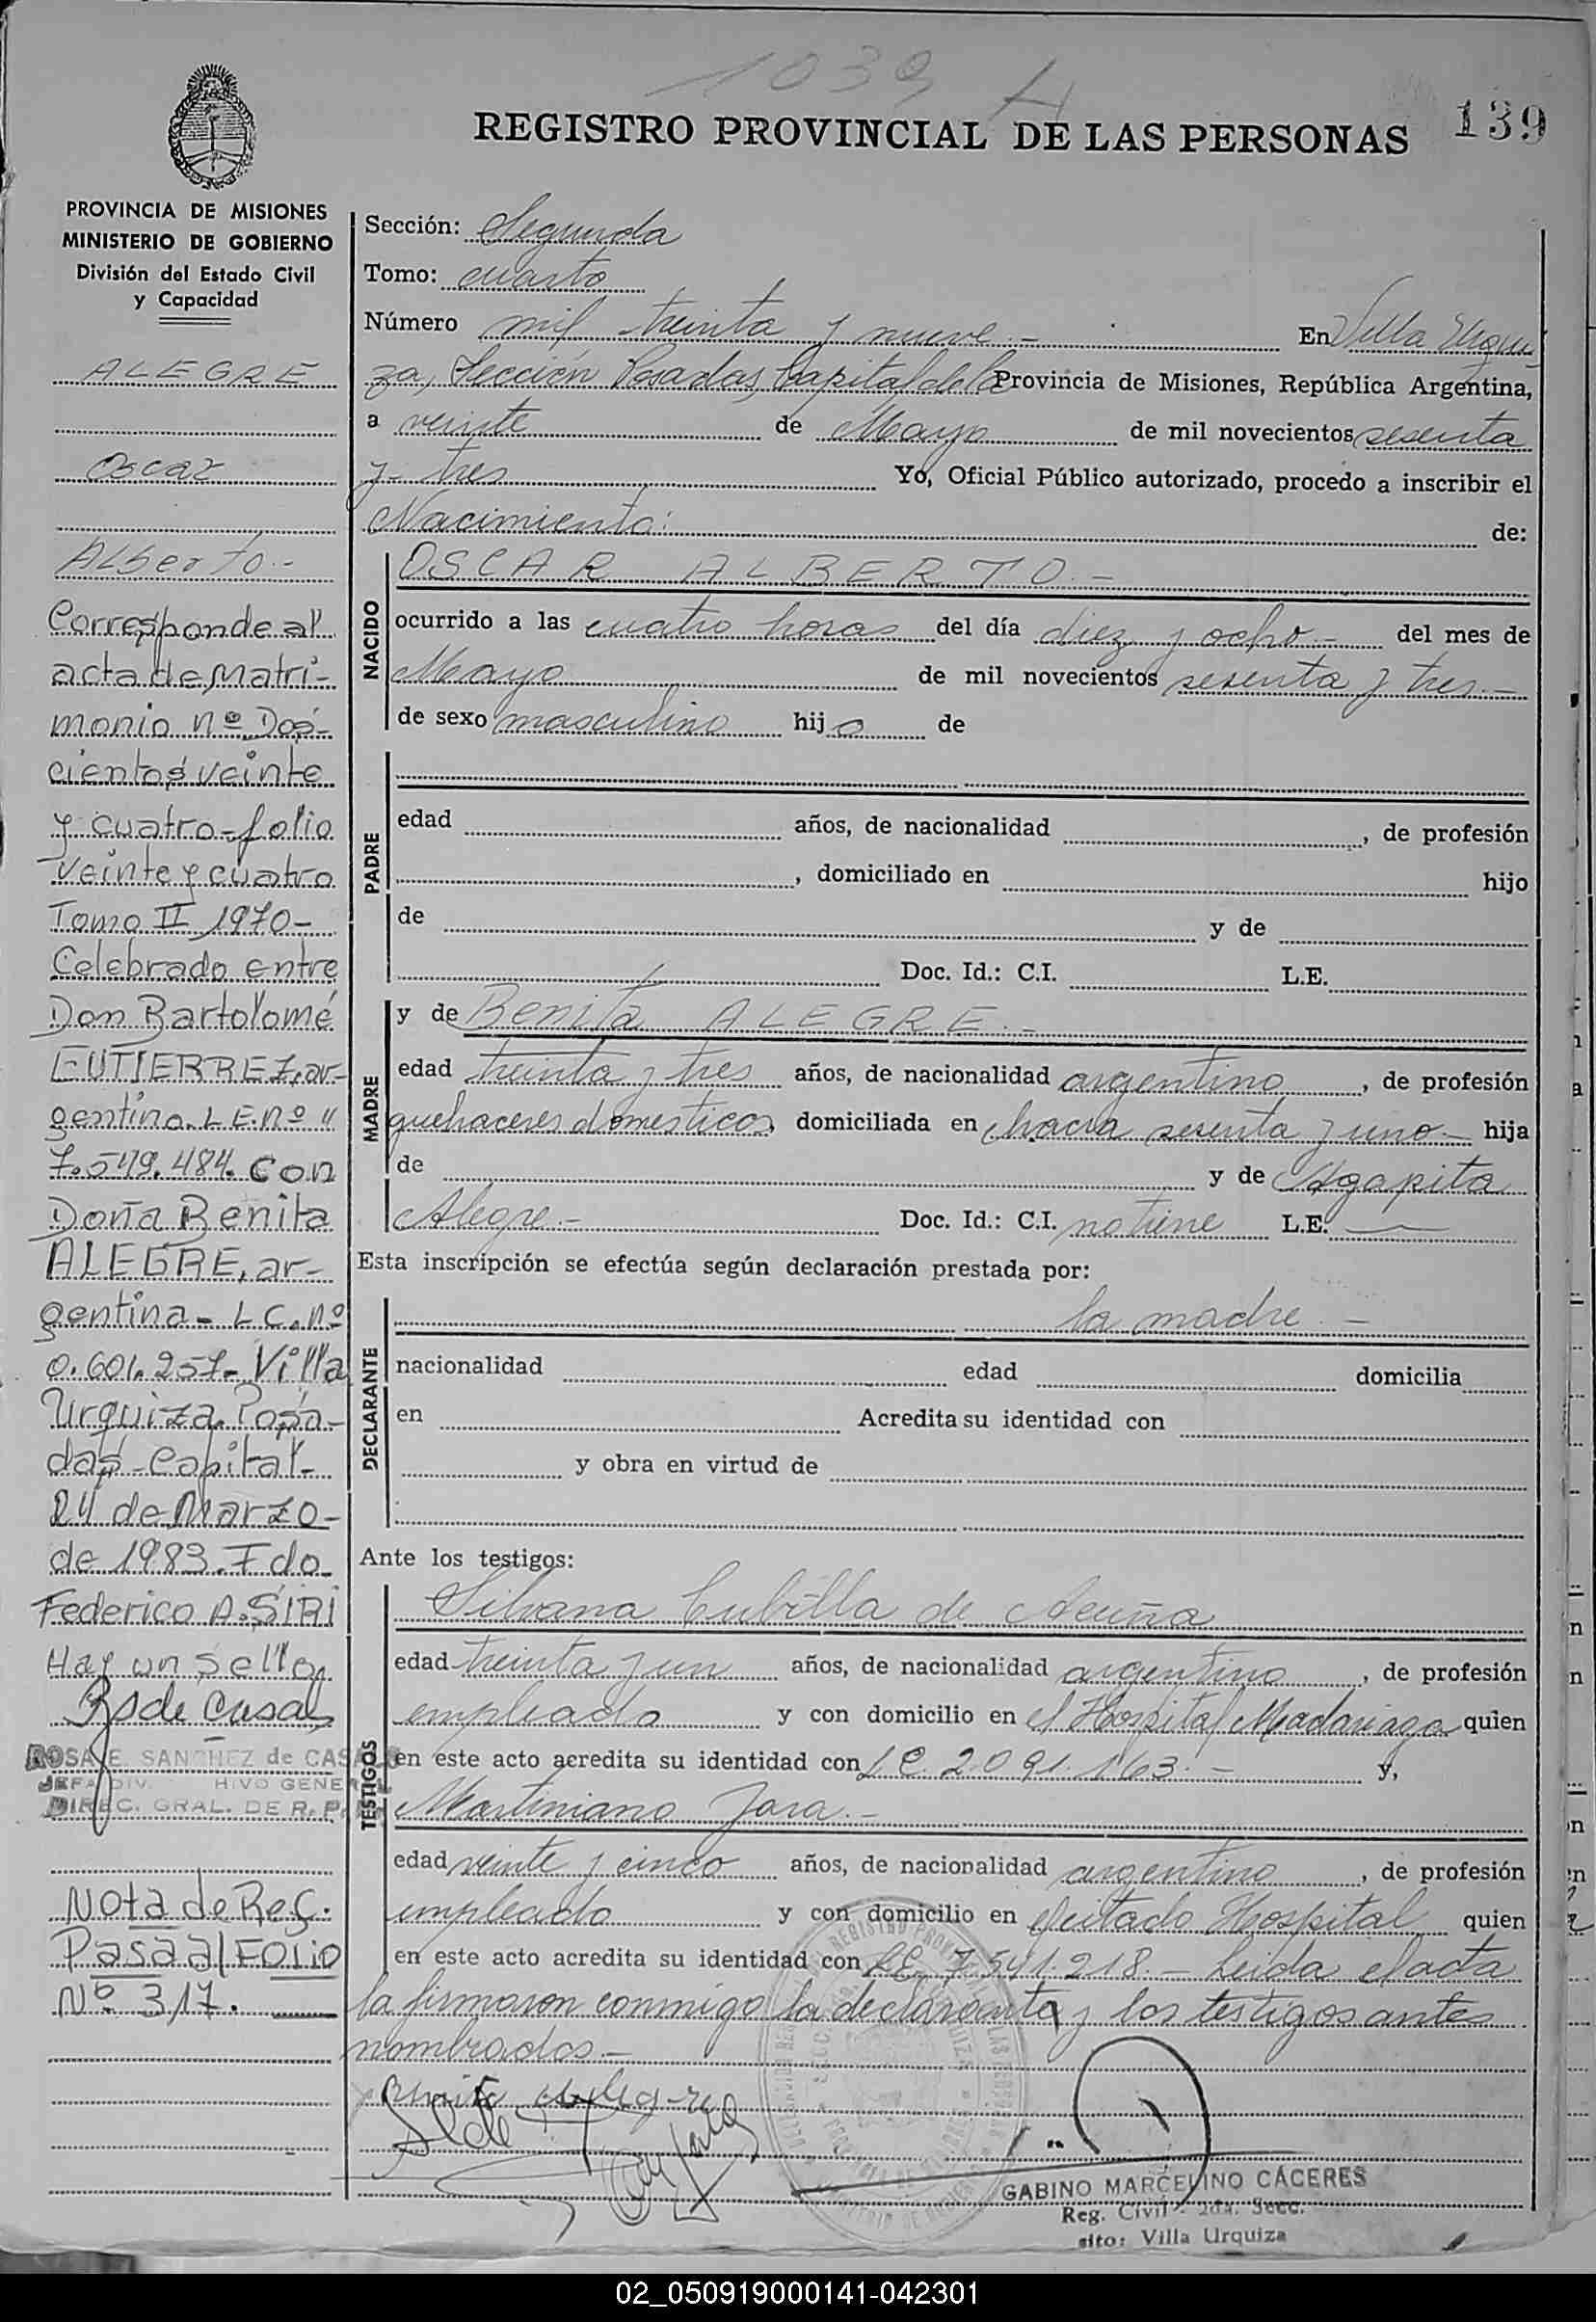 1039
REGISTRO PROVINCIAL DE LAS PERSONAS
139
PROVINCIA DE MISIONES
MINISTERIO DE GOBIERNO
División del Estado Civil
y Capacidad
ALEGRE
Oscar
Alberto.-
Corresponde al
acta de Matri-
monio nº Dos-
cientos veinte
y cuatro-folio
veinte y cuatro
Tomo II 1970-
Celebrado entre
Don Bartolomé
GUTIERREZ, ar-
gentino. L E. nº "
7.549.484. con
Doña Benita
ALEGRE, ar-
gentina- L C. nº
0.601.257- Villa
Urquiza. Posa-
das-Capital-
24 de Marzo-
de 1983. Fdo
Federico A. SIRI
Hay un sello,
RS de Casal
ROSA E. SANCHEZ de CASAL
JEFA DIV. HIVO GENE
DIREC. GRAL. DE R. P.
Nota de Rec.
Pasa al Folio
Nº 317.
Sección: Segunda
Tomo: cuarto
Número mil treinta y nueve.- En Villa Urqui-
za, Sección Posadas, Capital de la Provincia de Misiones, República Argentina,
a veinte de Mayo de mil novecientos sesenta
y tres Yo, Oficial Público autorizado, procedo a inscribir el
Nacimiento: de:
NACIDO
OSCAR ALBERTO.-
ocurrido a las cuatro horas del día diez y ocho- del mes de
Mayo de mil novecientos sesenta y tres.-
de sexo masculino hijo de
PADRE
edad años, de nacionalidad , de profesión
, domiciliado en hijo
de y de
Doc. Id.: C.I. L.E.
MADRE
y de Benita ALEGRE.-
edad treinta y tres años, de nacionalidad argentino , de profesión
quehaceres domesticos, domiciliada en chacra sesenta y uno- hija
de y de Agapita
Alegre.- Doc. Id.: C.I. no tiene L.E. —
Esta inscripción se efectúa según declaración prestada por:
DECLARANTE
la madre.-
nacionalidad edad domicilia
en Acredita su identidad con
y obra en virtud de
Ante los testigos:
TESTIGOS
Silvana Cubilla de Acuña
edad treinta y un años, de nacionalidad argentino , de profesión
empleado y con domicilio en el Hospital Madariaga quien
en este acto acredita su identidad con L C. 2.091.163.- y,
Martiniano Jara.-
edad veinte y cinco años, de nacionalidad argentino , de profesión
empleado y con domicilio en citado Hospital quien
en este acto acredita su identidad con LE. 7.541.218.- Leida el acta
la firmaron conmigo la declarante y los testigos antes
nombrados.-
Benita Alegre
GABINO MARCELINO CACERES
Reg. Civil - 2da. Secc.
sito: Villa Urquiza
02_050919000141-042301